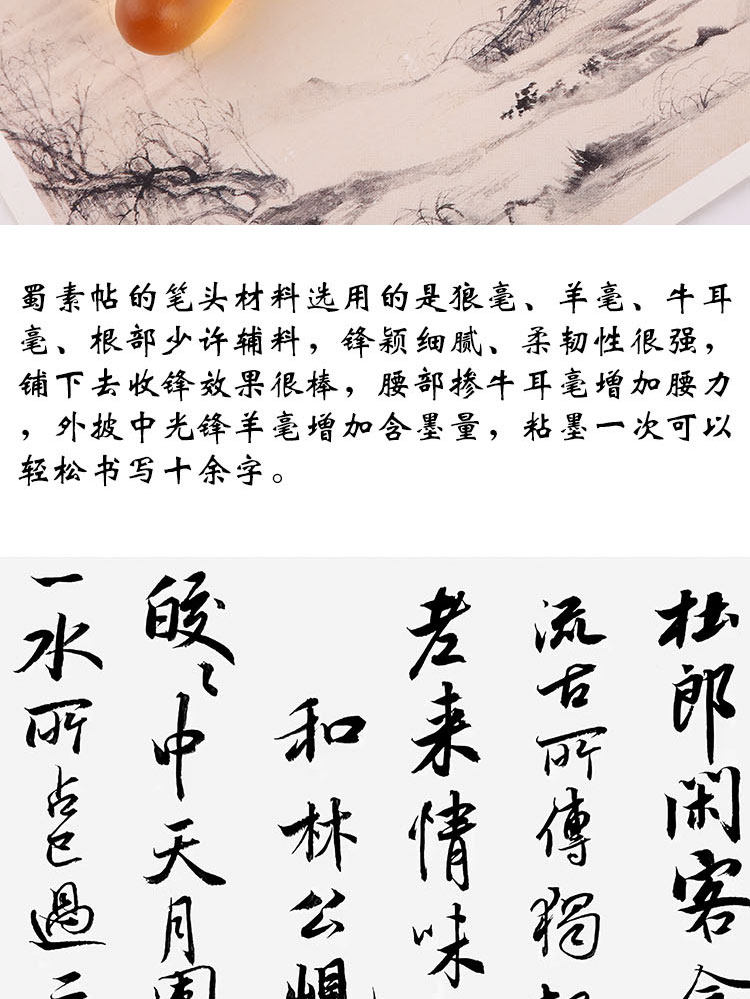 蜀素帖的笔头材料选用的是狼毫、羊毫、牛耳
毫、根部少许辅料，锋颖细腻、柔韧性很强，
铺下去收锋效果很棒，腰部掺牛耳毫增加腰力
，外披中光锋羊毫增加含墨量，粘墨一次可以
轻松书写十余字。
杜郎闲客今
流古所傳獨
老来情味
和林公峴
皎々中天月團
一水所占已過二